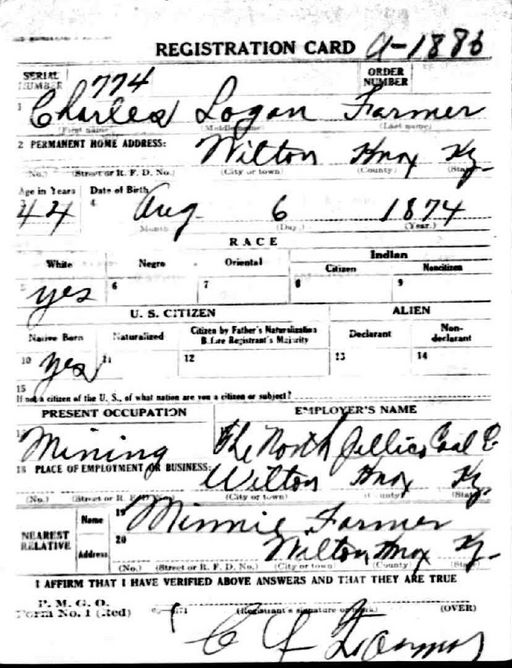 REGISTRATION CARD A-1886
SERIAL NUMBER 774 ORDER NUMBER
1 Charles Logan Farmer
(First name) (Middle name) (Last name)
2 PERMANENT HOME ADDRESS: Wilton Knox Ky.
(No.) (Street or R. F. D. No.) (City or town) (County) (State)
Age in Years Date of Birth
44 4 Aug 6 1874
Month (Day.) (Year.)
RACE
White Negro Oriental Indian
Citizen Noncitizen
5 yes 6 7 8 9
U. S. CITIZEN ALIEN
Native Born Naturalized Citizen by Father's Naturalization Before Registrant's Majority Declarant Non-declarant
10 yes 11 12 13 14
15
If not a citizen of the U. S., of what nation are you a citizen or subject?
PRESENT OCCUPATION EMPLOYER'S NAME
Mining The North Jellico Coal C
18 PLACE OF EMPLOYMENT OR BUSINESS: Wilton Knox Ky.
(No.) (Street or R. F. D. No.) (City or town) (County) (State)
NEAREST RELATIVE
Name 19 Minnie Farmer
Address 20 Wilton Knox Ky.
(No.) (Street or R. F. D. No.) (City or town) (County) (State)
I AFFIRM THAT I HAVE VERIFIED ABOVE ANSWERS AND THAT THEY ARE TRUE
P. M. G. O.
Form No. 1 (Red) (Registrant's signature or mark) (OVER)
C L Farmer